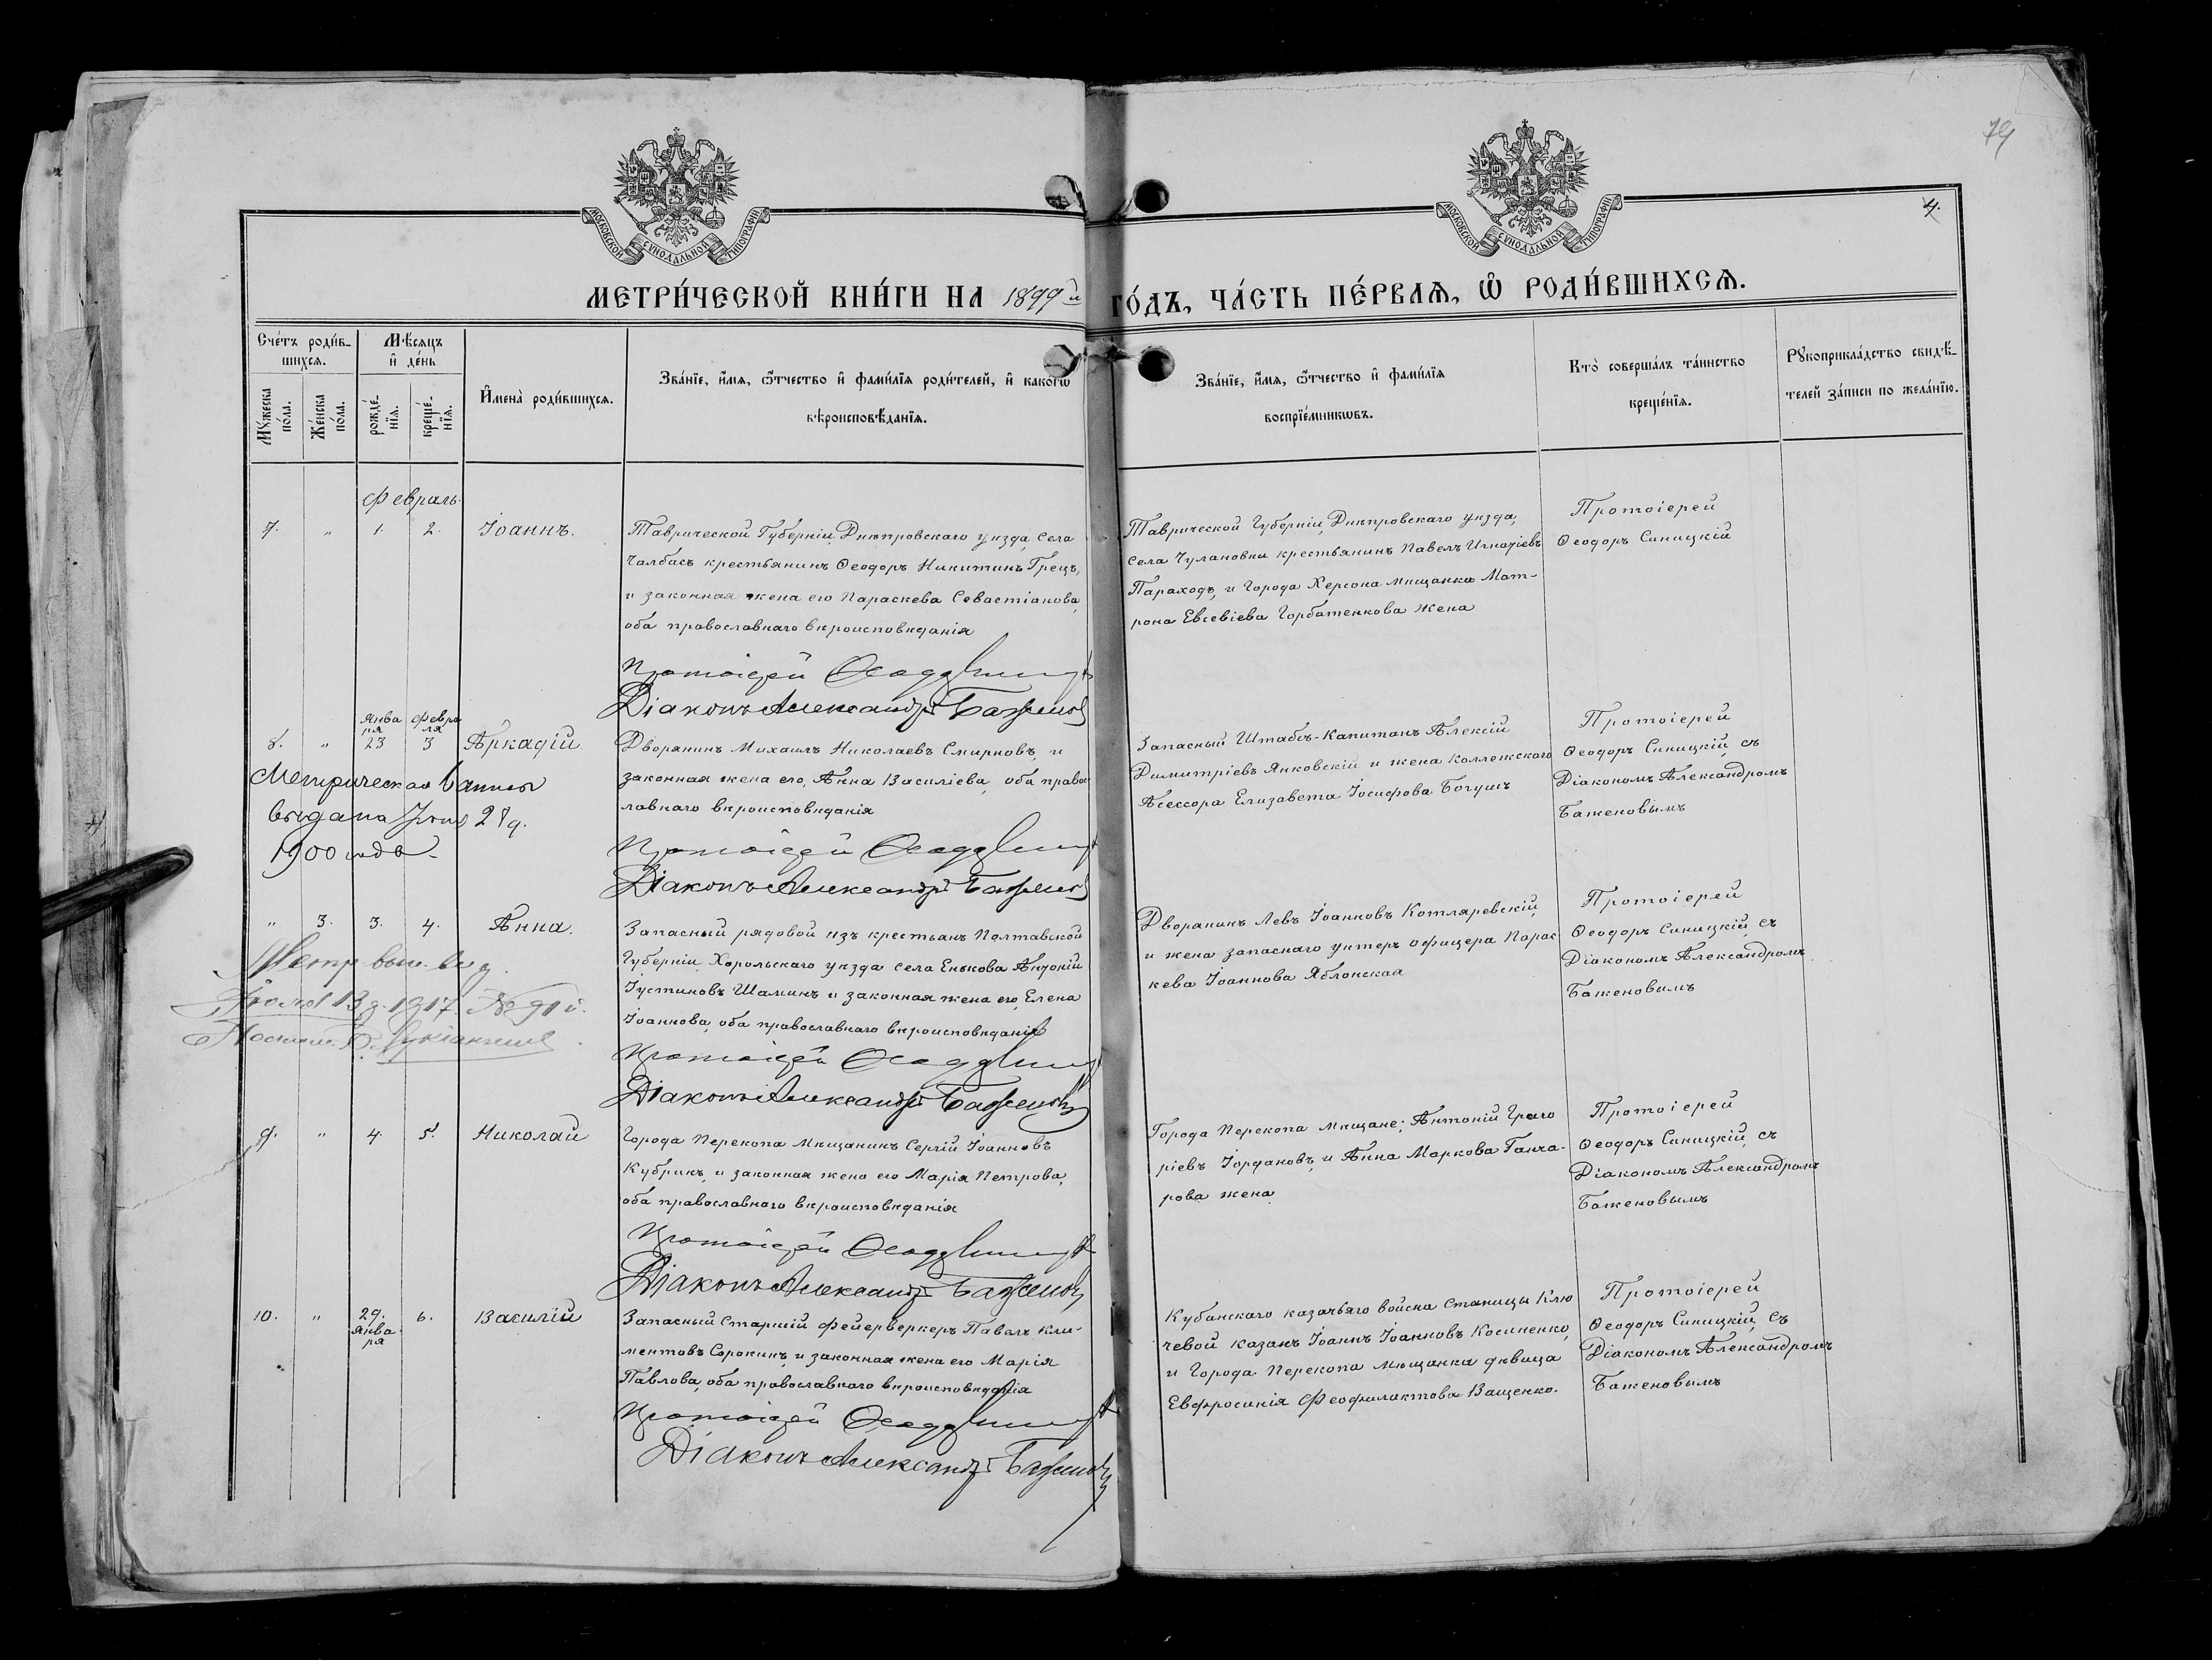 79
4.
МОСКОВСКОЙ СУНОДАЛЬНОЙ ТИПОГРАФІИ
МОСКОВСКОЙ СУНОДАЛЬНОЙ ТИПОГРАФІИ
МЕТРИ́ЧЕСКОЙ КНИ́ГИ НА 1899й ГО́ДЪ, ЧА́СТЬ ПЕ́РВАѦ, Ѡ РОДИ́ВШИХСѦ.
Сче́тъ роди́вшихсѧ.
Мꙋ́жеска по́ла.
Же́нска по́ла.
Мѣ́сѧцъ и҆ де́нь
рожде́нїѧ.
креще́нїѧ.
И҆мена̀ роди́вшихсѧ.
Зва́нїе, и҆́мѧ, ѻ҆́тчество и҆ фами́лїѧ роди́телей, и҆ како́гѡ
вѣроисповѣ́данїѧ.
Зва́нїе, и҆́мѧ, ѻ҆́тчество и҆ фами́лїѧ
воспрїе́мникѡвъ.
Кто̀ соверша́лъ та́инство
креще́нїѧ.
Рꙋкоприкла́дство свидѣ́-
телей за́писи по жела́нїю.
Февраль.
7. " 1. 2. Іоаннъ.
Таврической Губерніи, Днѣпровскаго уѣзда, села
Чалбасъ крестьянинъ Ѳеодоръ Никитинъ Грецъ,
и законная жена его Параскева Севастіанова,
оба православнаго вѣроисповѣданія
Протоіерей Ѳеодоръ
Діаконъ Александръ Баженовъ
Таврической Губерніи, Днѣпровскаго уѣзда,
села Чулановки крестьянинъ Павелъ Игнатіевъ
Параходъ, и Города Херсона мѣщанка Мат-
рона Евсевіева Горбатенкова жена
Протоіерей
Ѳеодоръ Синицкій
Января Февраля
8. " 23 3 Аркадій.
Метрическая
выдана 28 д.
1900 года
Дворянинъ Михаилъ Николаевъ Смирновъ, и
законная жена его, Анна Василіева, оба правос
лавнаго вѣроисповѣданія
Протоіерей Ѳеодоръ
Діаконъ Александръ Баженовъ
Запасный Штабсъ-Капитанъ Алексій
Димитріевъ Янковскій и жена Коллежскаго
Асессора Елизавета Іосифова Богушъ
Протоіерей
Ѳеодоръ Синицкій, съ
Діакономъ Александромъ
Баженовымъ
" 3. 3. 4. Анна.
Метр. вып. выд.
13 д. 1917
Запасный рядовой изъ крестьянъ Полтавской
Губерніи, Хорольскаго уѣзда села Енькова Антоній
Іустиновъ Шаминъ и законная жена его, Елена
Іоаннова, оба православнаго вѣроисповѣданія
Протоіерей Ѳеодоръ
Діаконъ Александръ Баженовъ
Дворянинъ Левъ Іоанновъ Котляревскій,
и жена запаснаго унтеръ офицера Парас
кева Іоаннова Яблонская
Протоіерей
Ѳеодоръ Синицкій, съ
Діакономъ Александромъ
Баженовымъ
9. " 4. 5. Николай
Города Перекопа мѣщанинъ Сергій Іоанновъ
Кубрикъ, и законная жена его Марія Петрова,
оба православнаго вѣроисповѣданія
Протоіерей Ѳеодоръ
Діаконъ Александръ Баженовъ
Города Перекопа мѣщане; Антоній Григо
ріевъ Іордановъ, и Анна Маркова Ганча-
рова жена
Протоіерей
Ѳеодоръ Синицкій, съ
Діакономъ Александромъ
Баженовымъ
10. " 29. Января 6. Василій
Запасный Старшій Фейерверкеръ Павелъ Кли-
ментовъ Сорокинъ, и законная жена его Марія
Павлова, оба православнаго вѣроисповѣданія
Протоіерей Ѳеодоръ
Діаконъ Александръ Баженовъ
Кубанскаго казачьяго войска станицы Клю
чевой казакъ Іоаннъ Іоанновъ Косиненко,
и Города Перекопа мѣщанка дѣвица
Евфросинія Феофилактова Ващенко.
Протоіерей
Ѳеодоръ Синицкій, съ
Діакономъ Александромъ
Баженовымъ